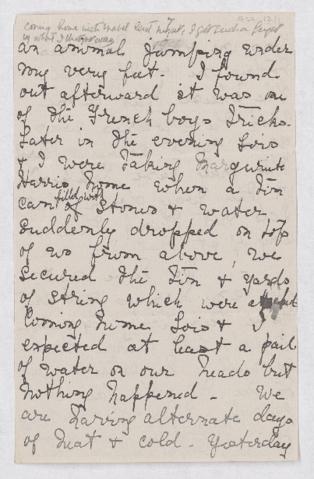 coming home with Mabel last night, I got such a fright
an animal jumping under
my very feet. I found
out afterward it was one
of the French boys tricks.
Later in the evening Lois
& I were taking Marguerite
Harris home when a tin
can filled with of stones & water
suddenly dropped on top
of us from above, we
secured the tin & yards
of string which were
Coming home Lois & I
expected at least a pail
of water on our heads but
nothing happened - We
are having alternate days
of heat & cold - Yesterday